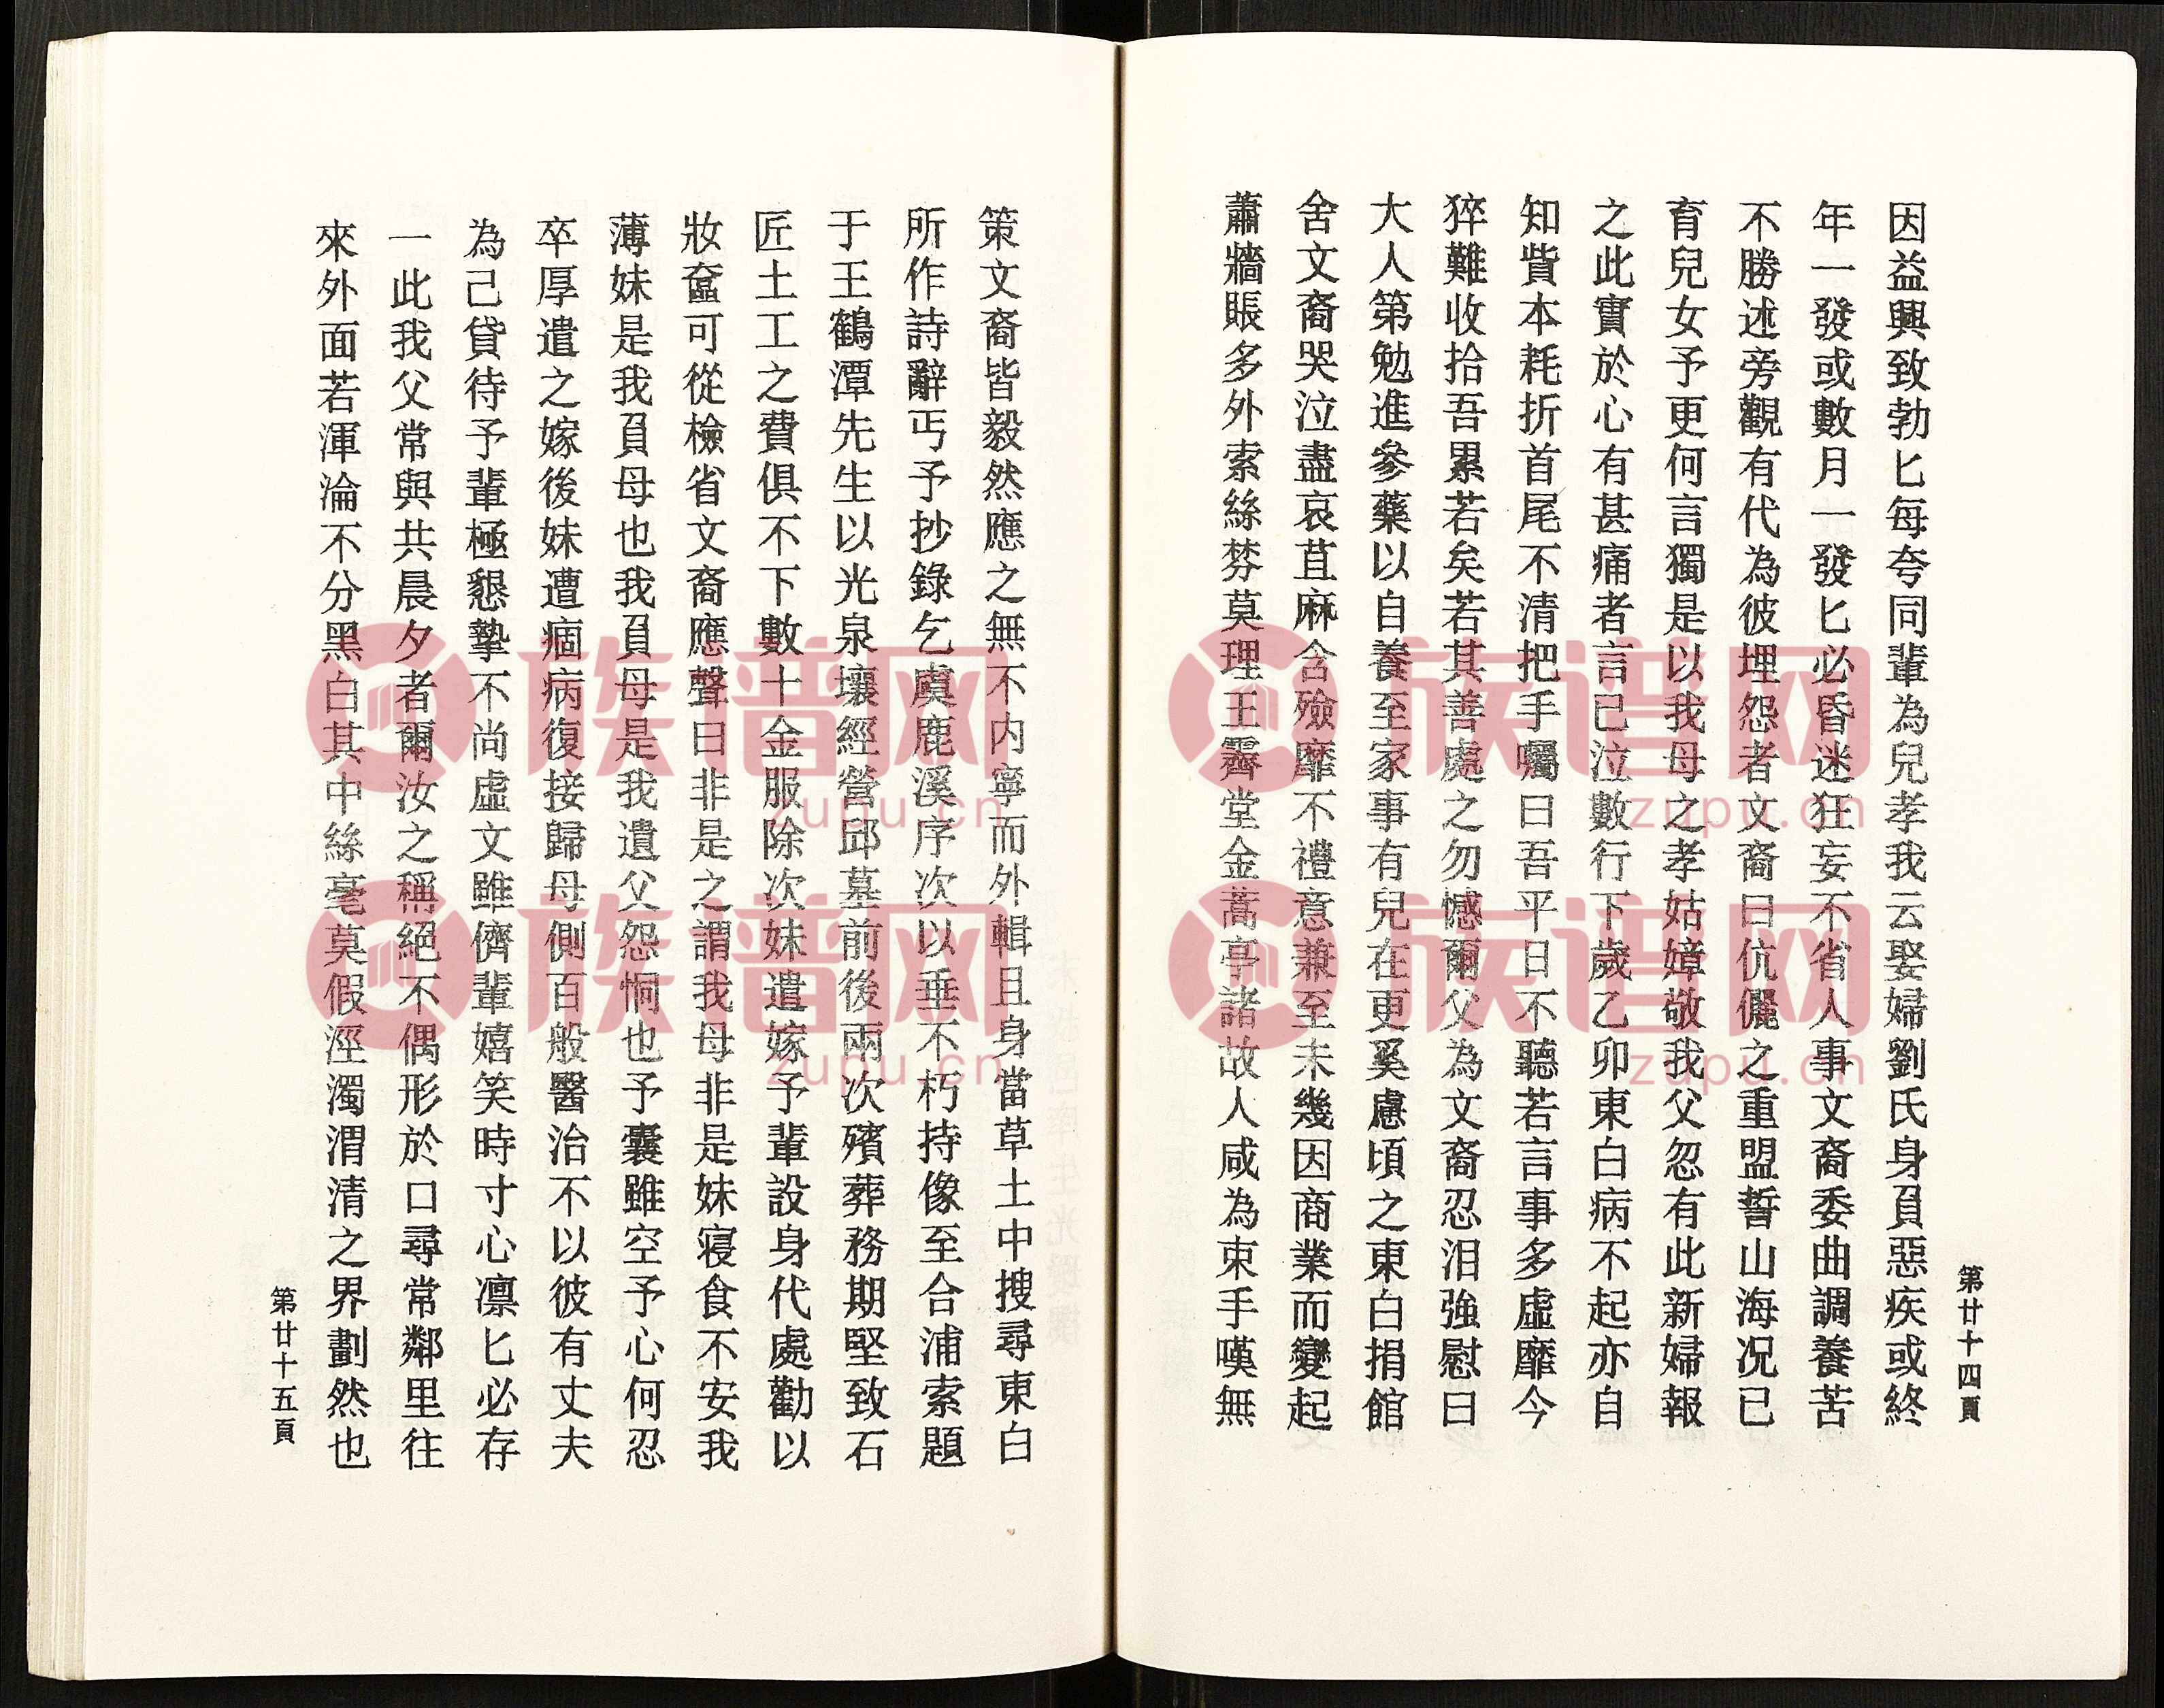 第廿十四頁
因益興致勃匕每夸同輩為兒孝我云娶婦劉氏身負惡疾或終
年一發或數月一發匕必昏迷狂妄不省人事文裔委曲調養苦
不勝述旁觀有代為彼埋怨者文裔曰伉儷之重盟誓山海况已
育兒女予更何言獨是以我母之孝姑嫜敬我父忽有此新婦報
之此實於心有甚痛者言己泣數行下歲乙卯東白病不起亦自
知貲本耗折首尾不清把手囑曰吾平日不聽若言事多虛靡今
猝難收拾吾累若矣若其善處之勿憾爾父為文裔忍泪強慰曰
大人第勉進參藥以自養至家事有兒在更奚慮頃之東白捐館
舍文裔哭泣盡哀苴麻含殮靡不禮意兼至未幾因商業而變起
蕭牆賬多外索絲棼莫理王霽堂金蒿亭諸故人咸為束手嘆無
策文裔皆毅然應之無不内寧而外輯且身當草土中搜尋東白
所作詩辭丐予抄錄乞虞鹿溪序次以垂不朽持像至合浦索題
于王鶴潭先生以光泉壤經營邱墓前後兩次殯葬務期堅致石
匠土工之費俱不下數十金服除次妹遣嫁予輩設身代處勸以
妝奩可從檢省文裔應聲曰非是之謂我母非是妹寢食不安我
薄妹是我負母也我負母是我遺父怨恫也予囊雖空予心何忍
卒厚遣之嫁後妹遭痼病復接歸母側百般醫治不以彼有丈夫
為己貸待予輩極懇摯不尚虛文雖儕輩嬉笑時寸心凛匕必存
一此我父常與共晨夕者爾汝之稱絕不偶形於口尋常鄰里往
來外面若渾淪不分黑白其中絲毫莫假涇濁渭清之界劃然也
第廿十五頁
族谱网
zupu.cn
族谱网
zupu.cn
族谱网
zupu.cn
族谱网
zupu.cn